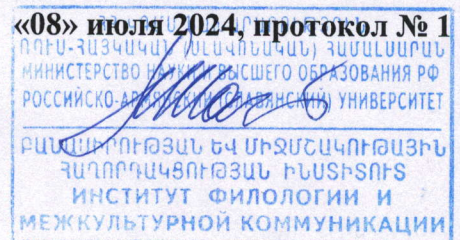 «08» июля 2024, протокол № 1
ՌՈՒՍ-ՀԱՅԿԱԿԱՆ (ՍԼԱՎՈՆԱԿԱՆ) ՀԱՄԱԼՍԱՐԱՆ
МИНИСТЕРСТВО НАУКИ ВЫСШЕГО ОБРАЗОВАНИЯ РФ
РОССИЙСКО-АРМЯНСКИЙ (СЛАВЯНСКИЙ) УНИВЕРСИТЕТ
ԲԱՆԱՍԻՐՈՒԹՅԱՆ ԵՎ ՄԻՋՄՇԱԿՈՒԹԱՅԻՆ
ՀԱՂՈՐԴԱԿՑՈՒԹՅԱՆ ԻՆՍՏԻՏՈՒՏ
ИНСТИТУТ ФИЛОЛОГИИ И
МЕЖКУЛЬТУРНОЙ КОММУНИКАЦИИ